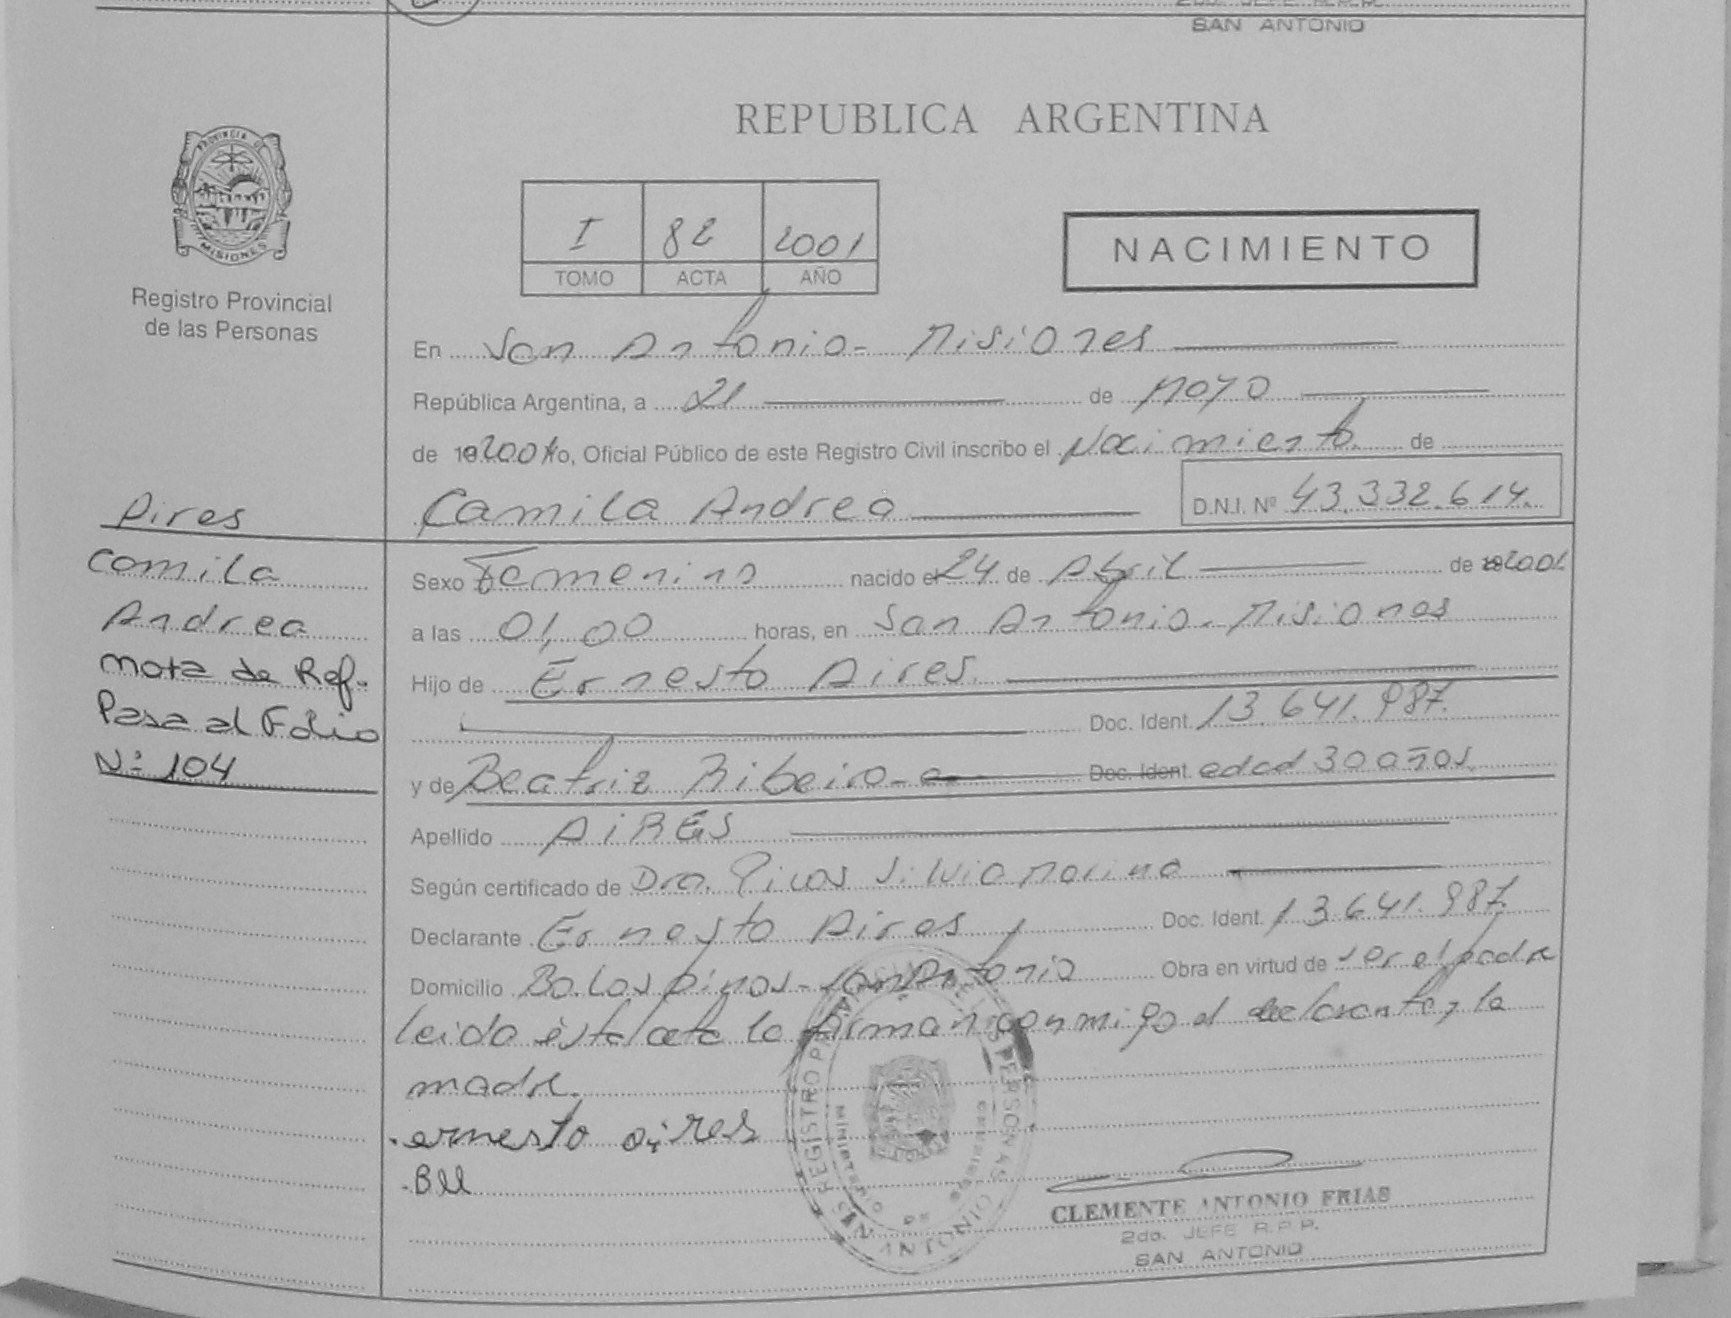 2do. JEFE R.P.P.
SAN ANTONIO
REPUBLICA ARGENTINA
PROVINCIA DE
MISIONES
Registro Provincial
de las Personas
I 82 2001
TOMO ACTA AÑO
NACIMIENTO
En San Antonio - Misiones
República Argentina, a 21 de Mayo
de 192001 Yo, Oficial Público de este Registro Civil inscribo el Nacimiento de
Camila Andrea D.N.I. Nº 43.332.614.
Pires
Camila
Andrea
Nota de Ref.
Pasa al Folio
Nº 104
Sexo Femenino nacido el 24 de Abril de 192001
a las 01,00 horas, en San Antonio - Misiones
Hijo de Ernesto Aires.
Doc. Ident. 13.641.987.
y de Beatriz Ribeiro - Doc. Ident. edad 30 años.
Apellido AIRES
Según certificado de Dra. Silvia Marina
Declarante Ernesto Aires Doc. Ident. 13.641.987.
Domicilio Bo. Los Pinos - San Antonio Obra en virtud de ser el padre
leida ésta acta la firman conmigo el declarante, y la
madre.
ernesto aires
REGISTRO PROVINCIAL DE LAS PERSONAS
MINISTERIO DE
SAN ANTONIO
CLEMENTE ANTONIO FRIAS
2do. JEFE R.P.P.
SAN ANTONIO